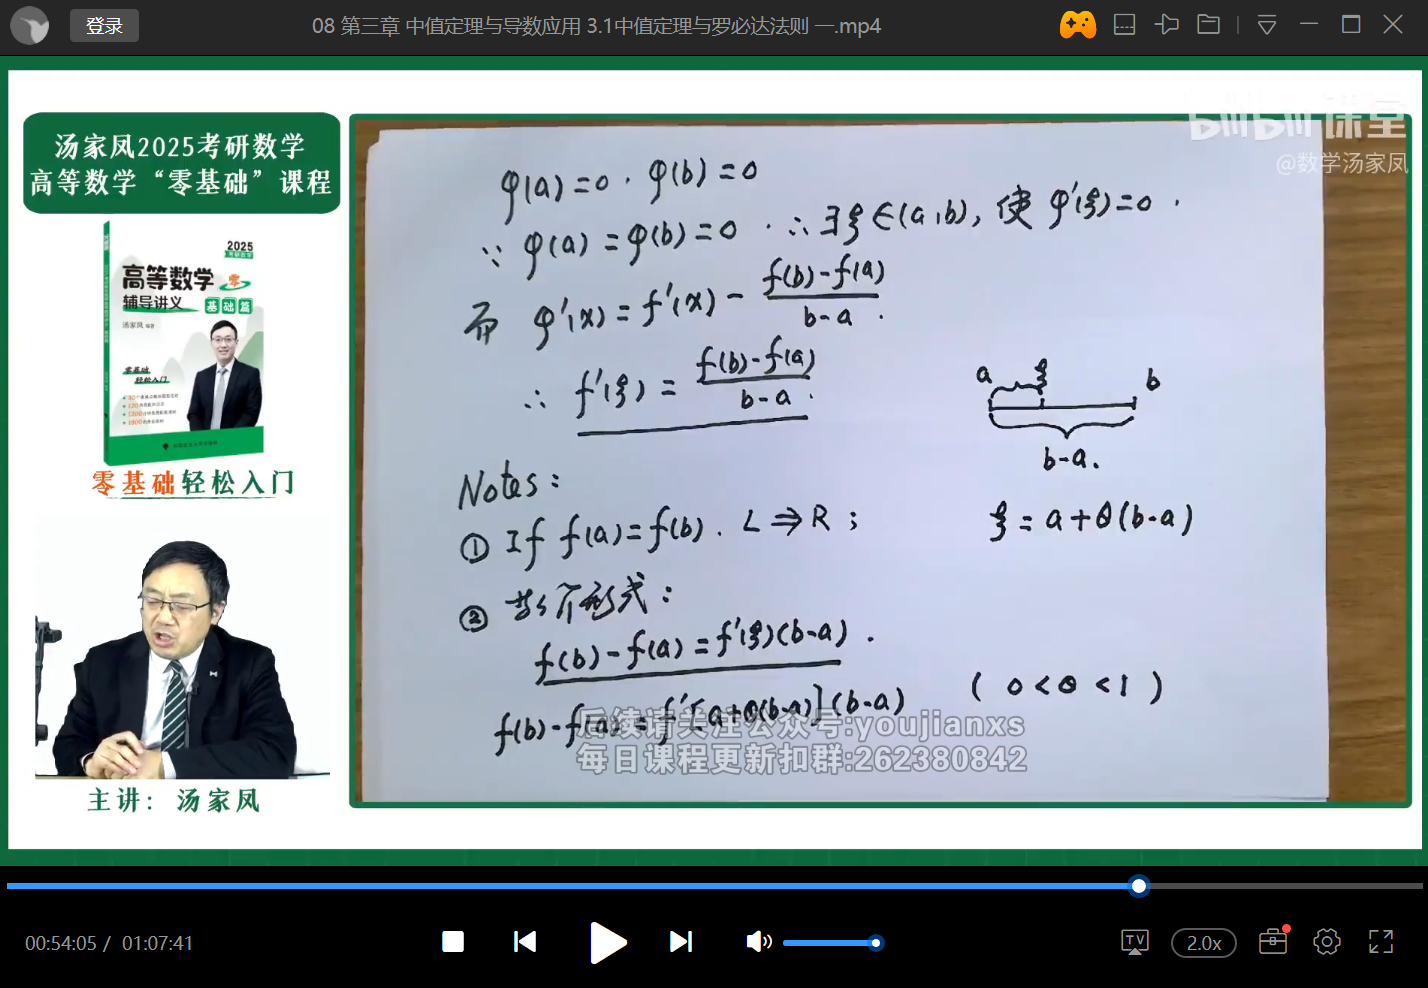 登录
08 第三章 中值定理与导数应用 3.1中值定理与罗必达法则 一.mp4
汤家凤2025考研数学
高等数学“零基础”课程
2025
高等数学 零
辅导讲义 基础篇
汤家凤
零基础
轻松入门
零基础轻松入门
主讲：汤家凤
bilibili课堂
@数学汤家凤
φ(a)=0. φ(b)=0
∵ φ(a)=φ(b)=0. ∴∃ξ∈(a,b), 使 φ'(ξ)=0.
而 φ'(x)=f'(x)-
f(b)-f(a)
b-a.
∴ f'(ξ)=
f(b)-f(a)
b-a.
a ξ b
b-a.
Notes:
① If f(a)=f(b). L⇒R;
ξ=a+θ(b-a)
② 等价形式:
f(b)-f(a)=f'(ξ)(b-a).
f(b)-f(a)=f'[a+θ(b-a)](b-a) (0<θ<1)
后续请关注公众号:youjianxs
每日课程更新扣群:262380842
00:54:05 / 01:07:41
TV
2.0x